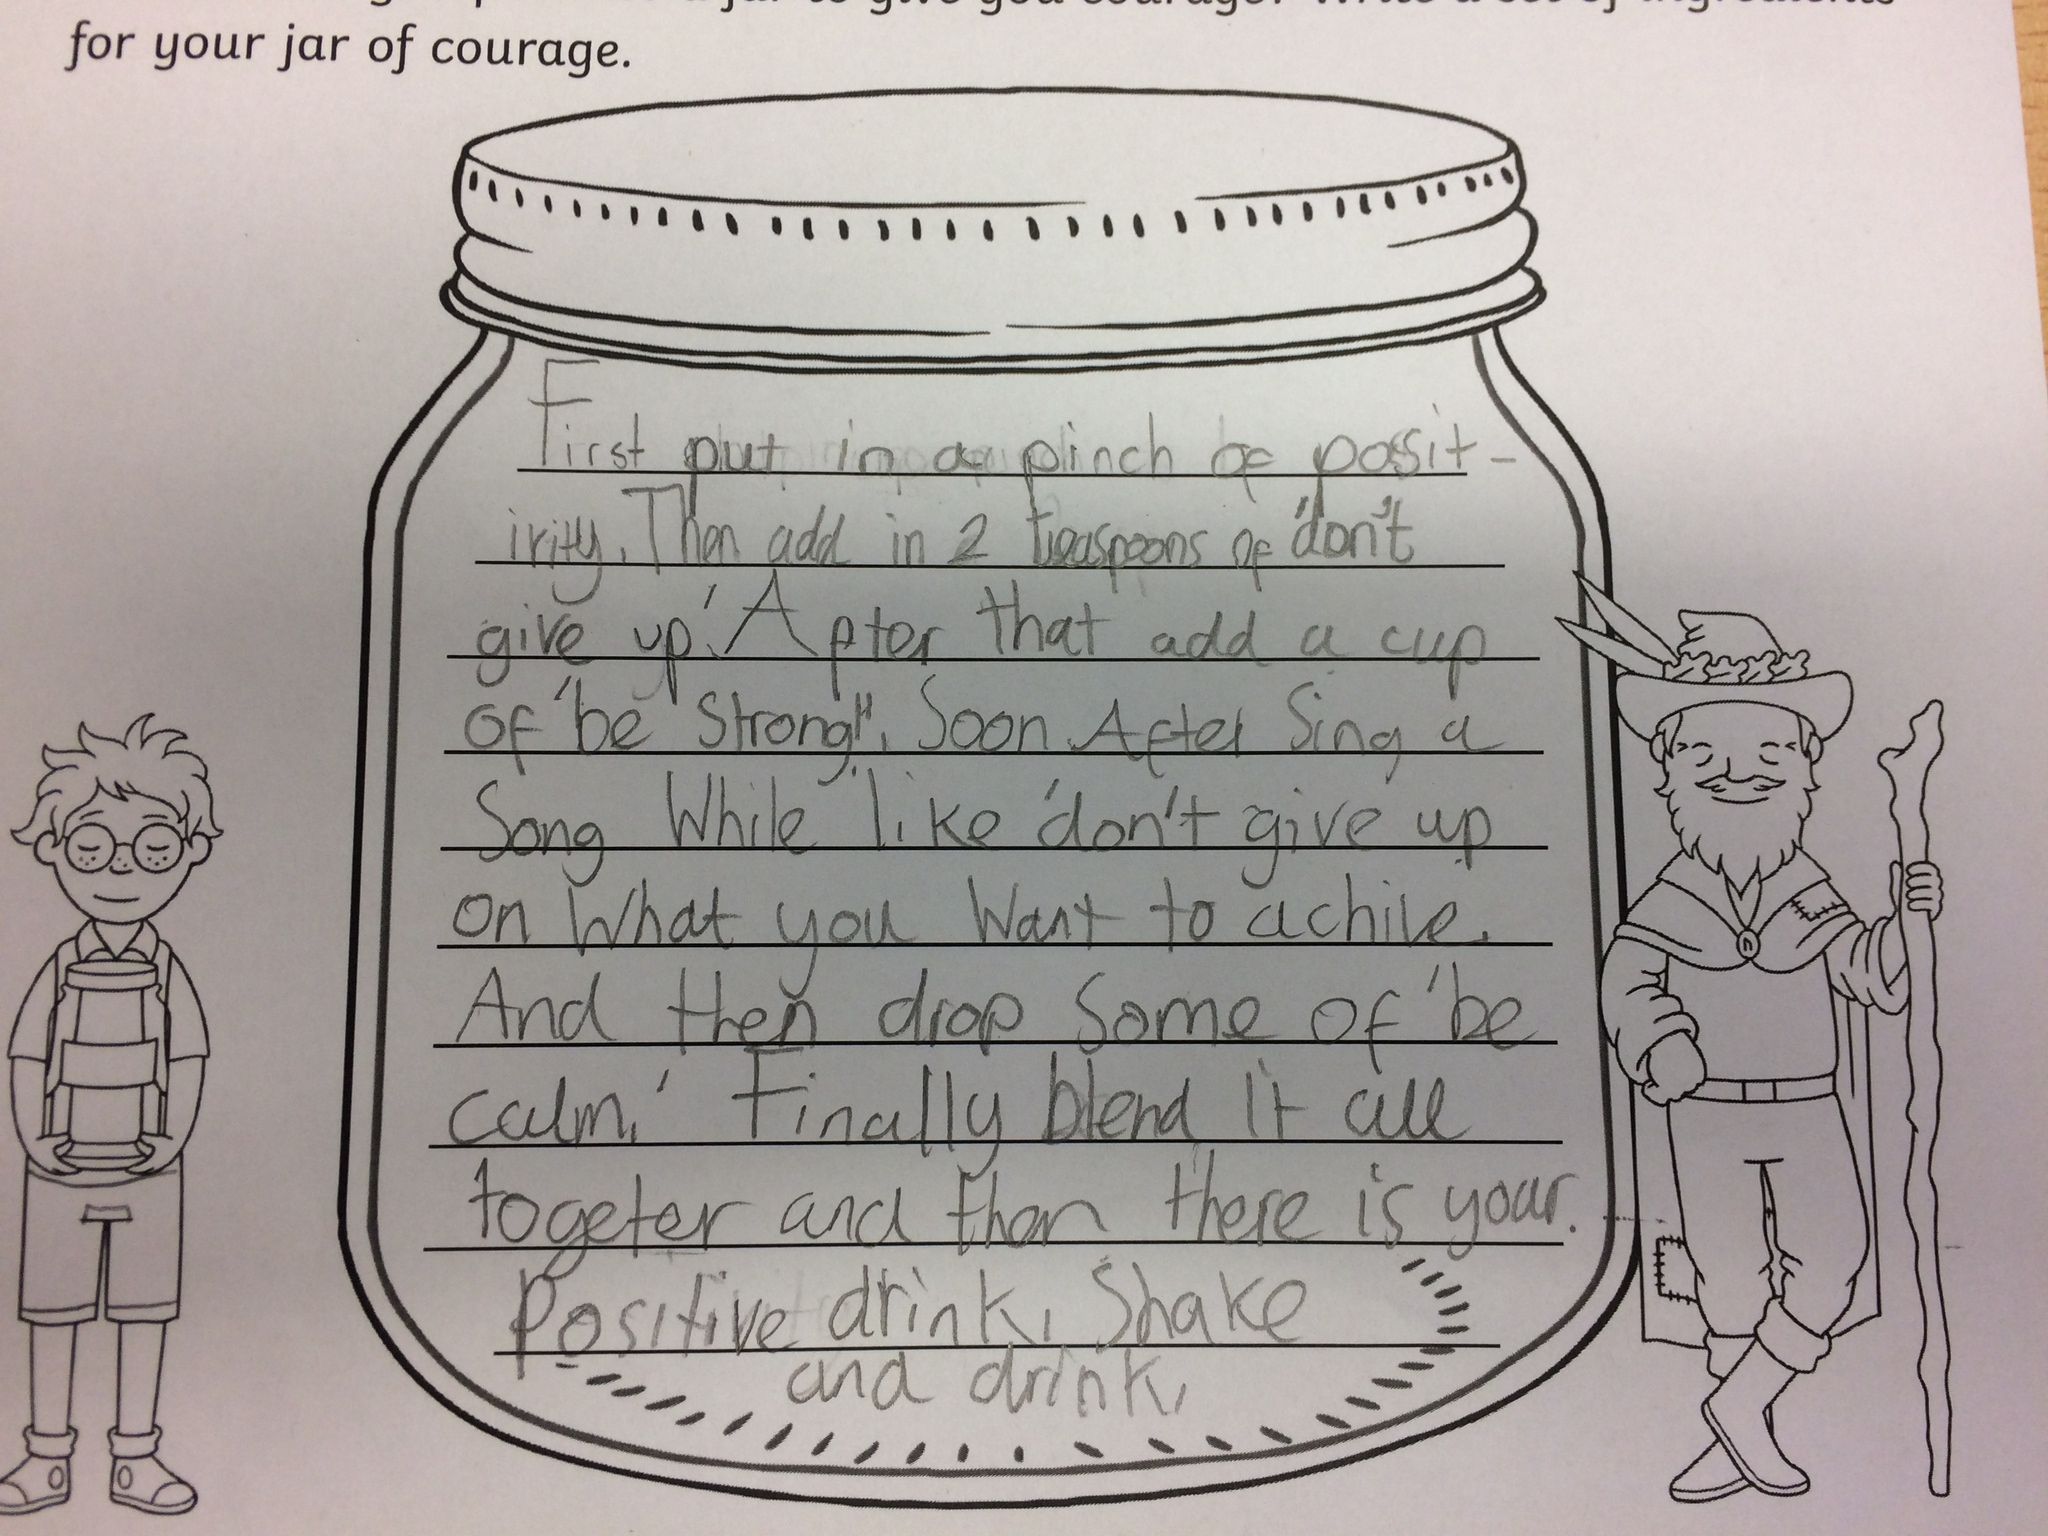 a jar to give you courage? Write a set of ingredients
for your jar of courage.
First put in a pinch of posit-
irity. Then add in 2 teaspoons of 'don't
give up'. After that add a cup
of 'be strong!'. Soon After Sing a
Song While like 'don't give up
on What you Want to achive.
And then drop Some of 'be
calm.' Finally blend it all
togeter and then there is your.
Positive drink. Shake
and drink.